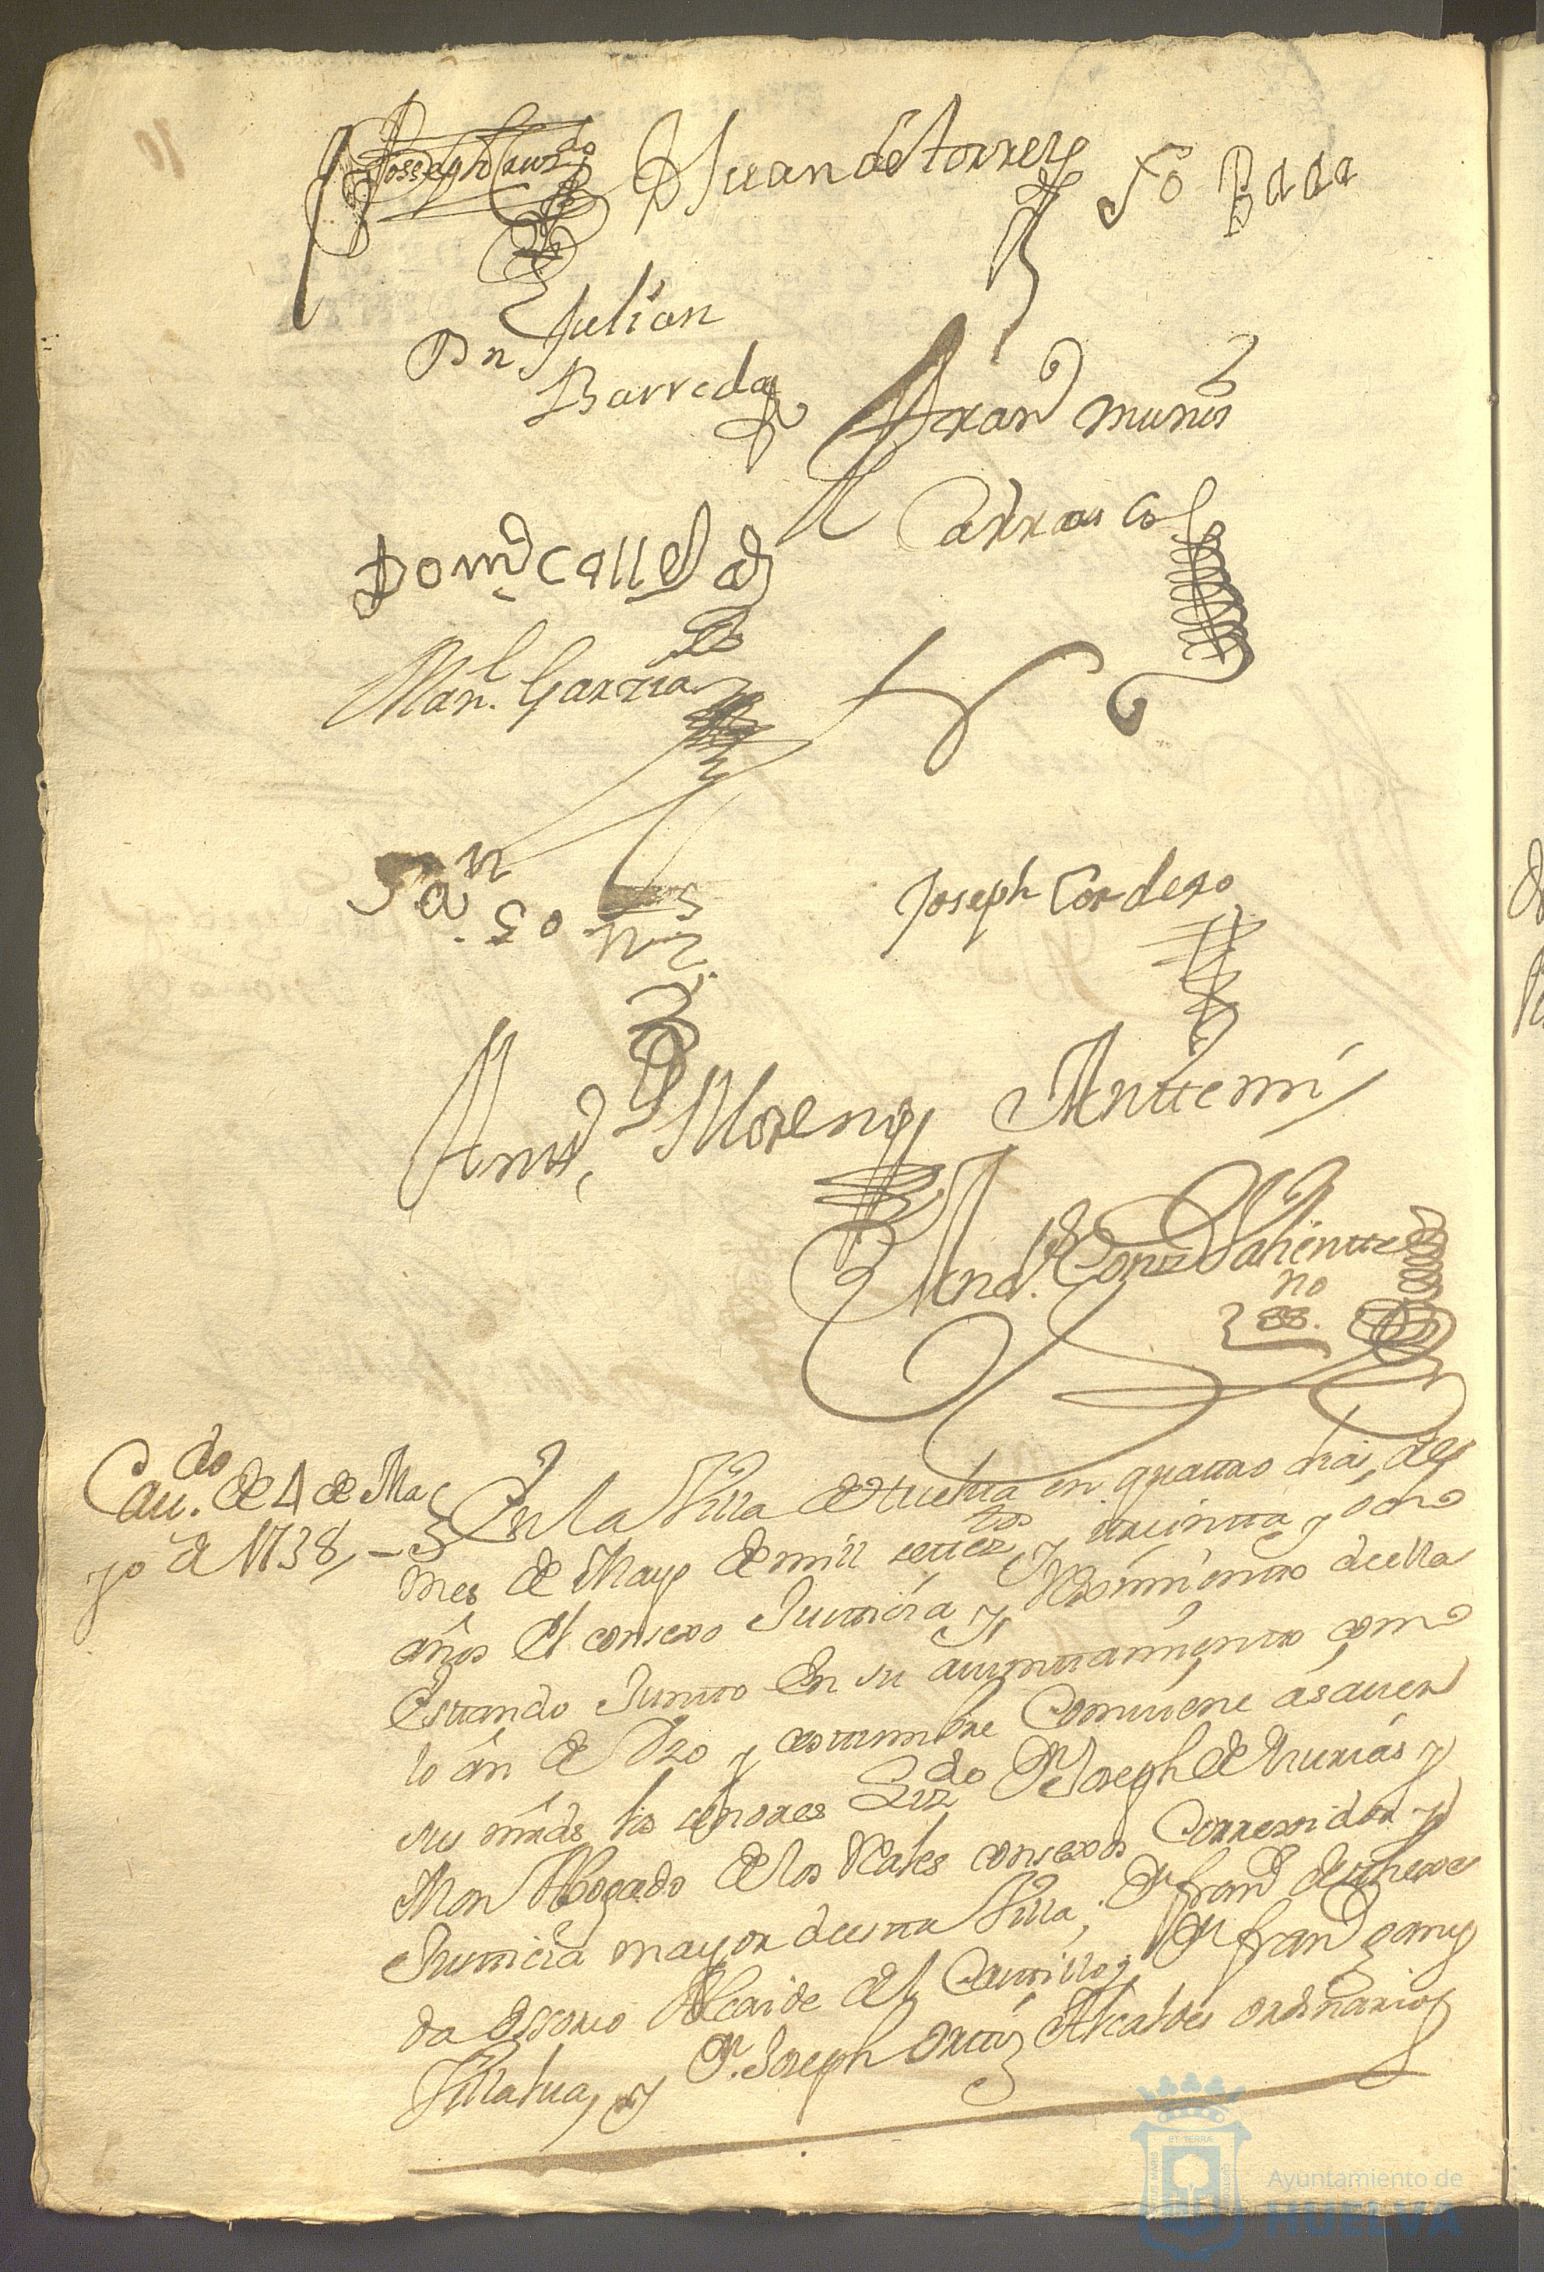 Joseph
Juan de torres
Bara
Dn Julian
Barreda
Fran.co munis
Carrasco
Dom.o Calle
Man.l Garzia
Jua.n
Joseph Cordero
Moreno
Anttemi
Valientte
no
Cau.do de 4 de Ma
yo de 1738,,
En la Villa de Huelva en quattro dias del
mes de Mayo de mill settez.tos y treintta y ocho
años El consexo Justticia y Reximiento de ella
Esttando Juntto En su aiunttamiento como
lo án de Vzo y costtumbre Combiene ásauer
sus mrds los señores Liz.do Dn Joseph de
Mon Abogado de los Rales consexos Correxidor y
Justticia mayor de estta Villa, Dn fran.co de
da Ossorio Alcaide del Casttillo, Dn fran.co
Villalua, y Dn. Joseph Orttiz Alcaldes ordinarios
Ayuntamiento de
HUELVA